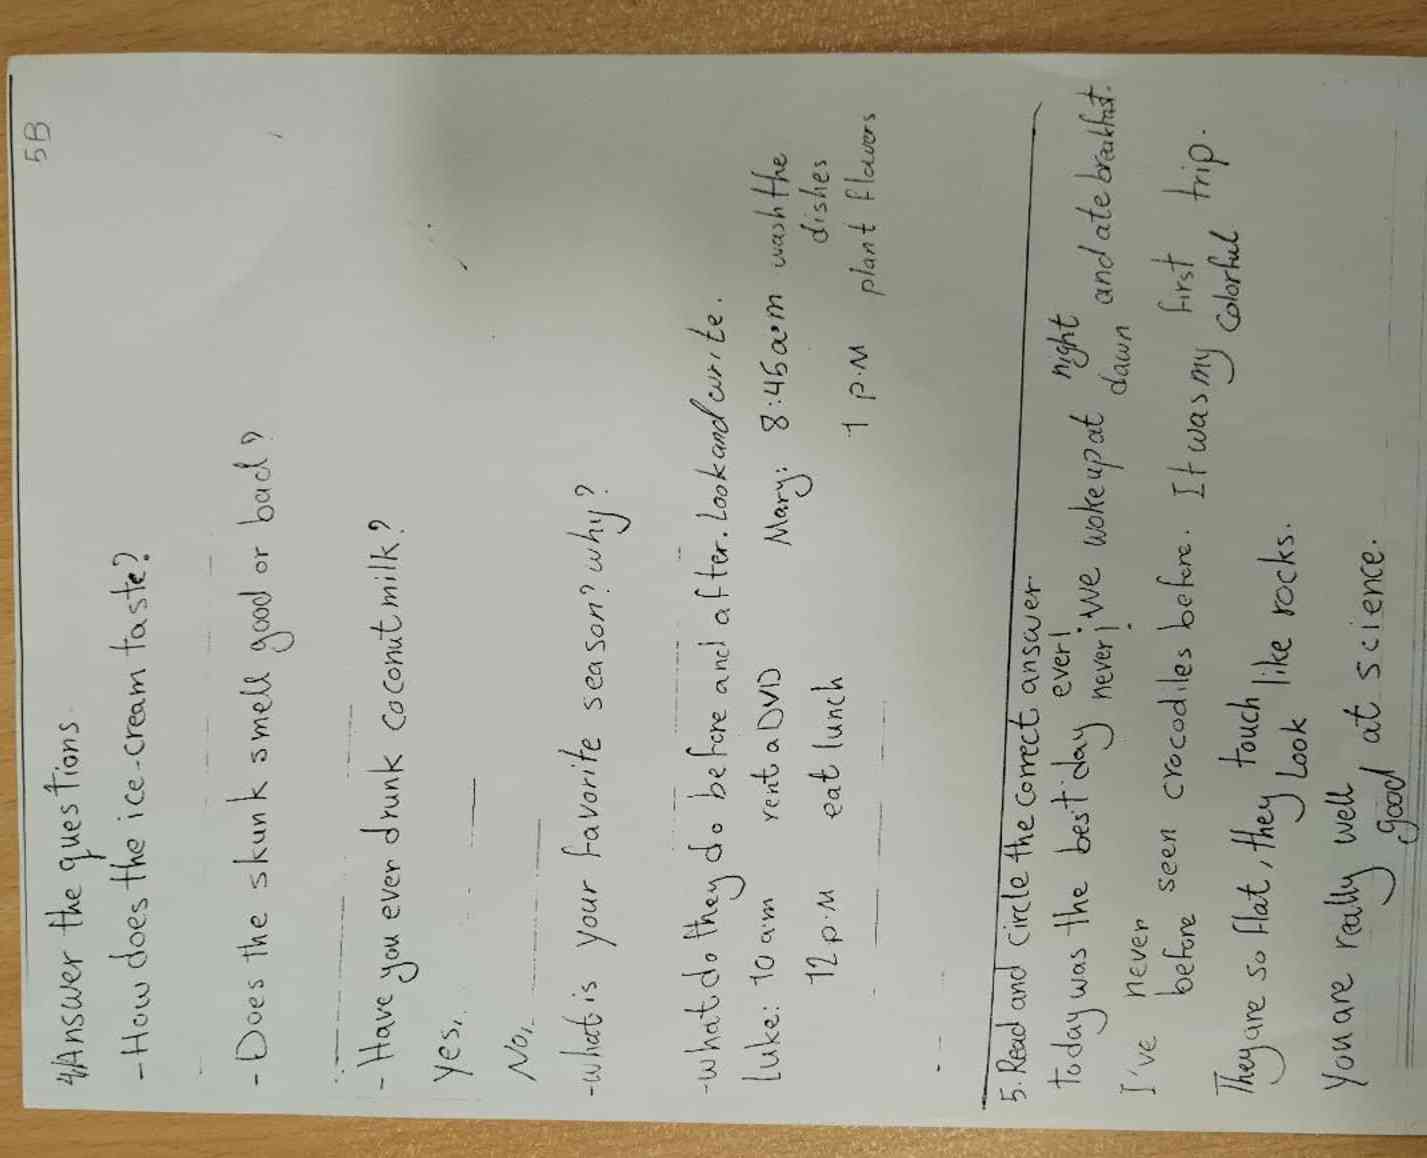 5B
4 Answer the questions
- How does the ice-cream taste?
- Does the skunk smell good or bad?
- Have you ever drunk coconut milk?
Yes,
No,
- what is your favorite season? why?
- what do they do before and after. Look and write.
Luke: 10 am rent a DVD Mary: 8:45 a.m wash the
dishes
12 p.M eat lunch 1 p.M plant flawers
5. Read and circle the correct answer
Today was the best day ever! We woke up at night and ate breakfast.
never! dawn
I've never seen crocodiles before. It was my first trip.
before colorful
They are so flat, they touch like rocks.
Look
You are really well at science.
good